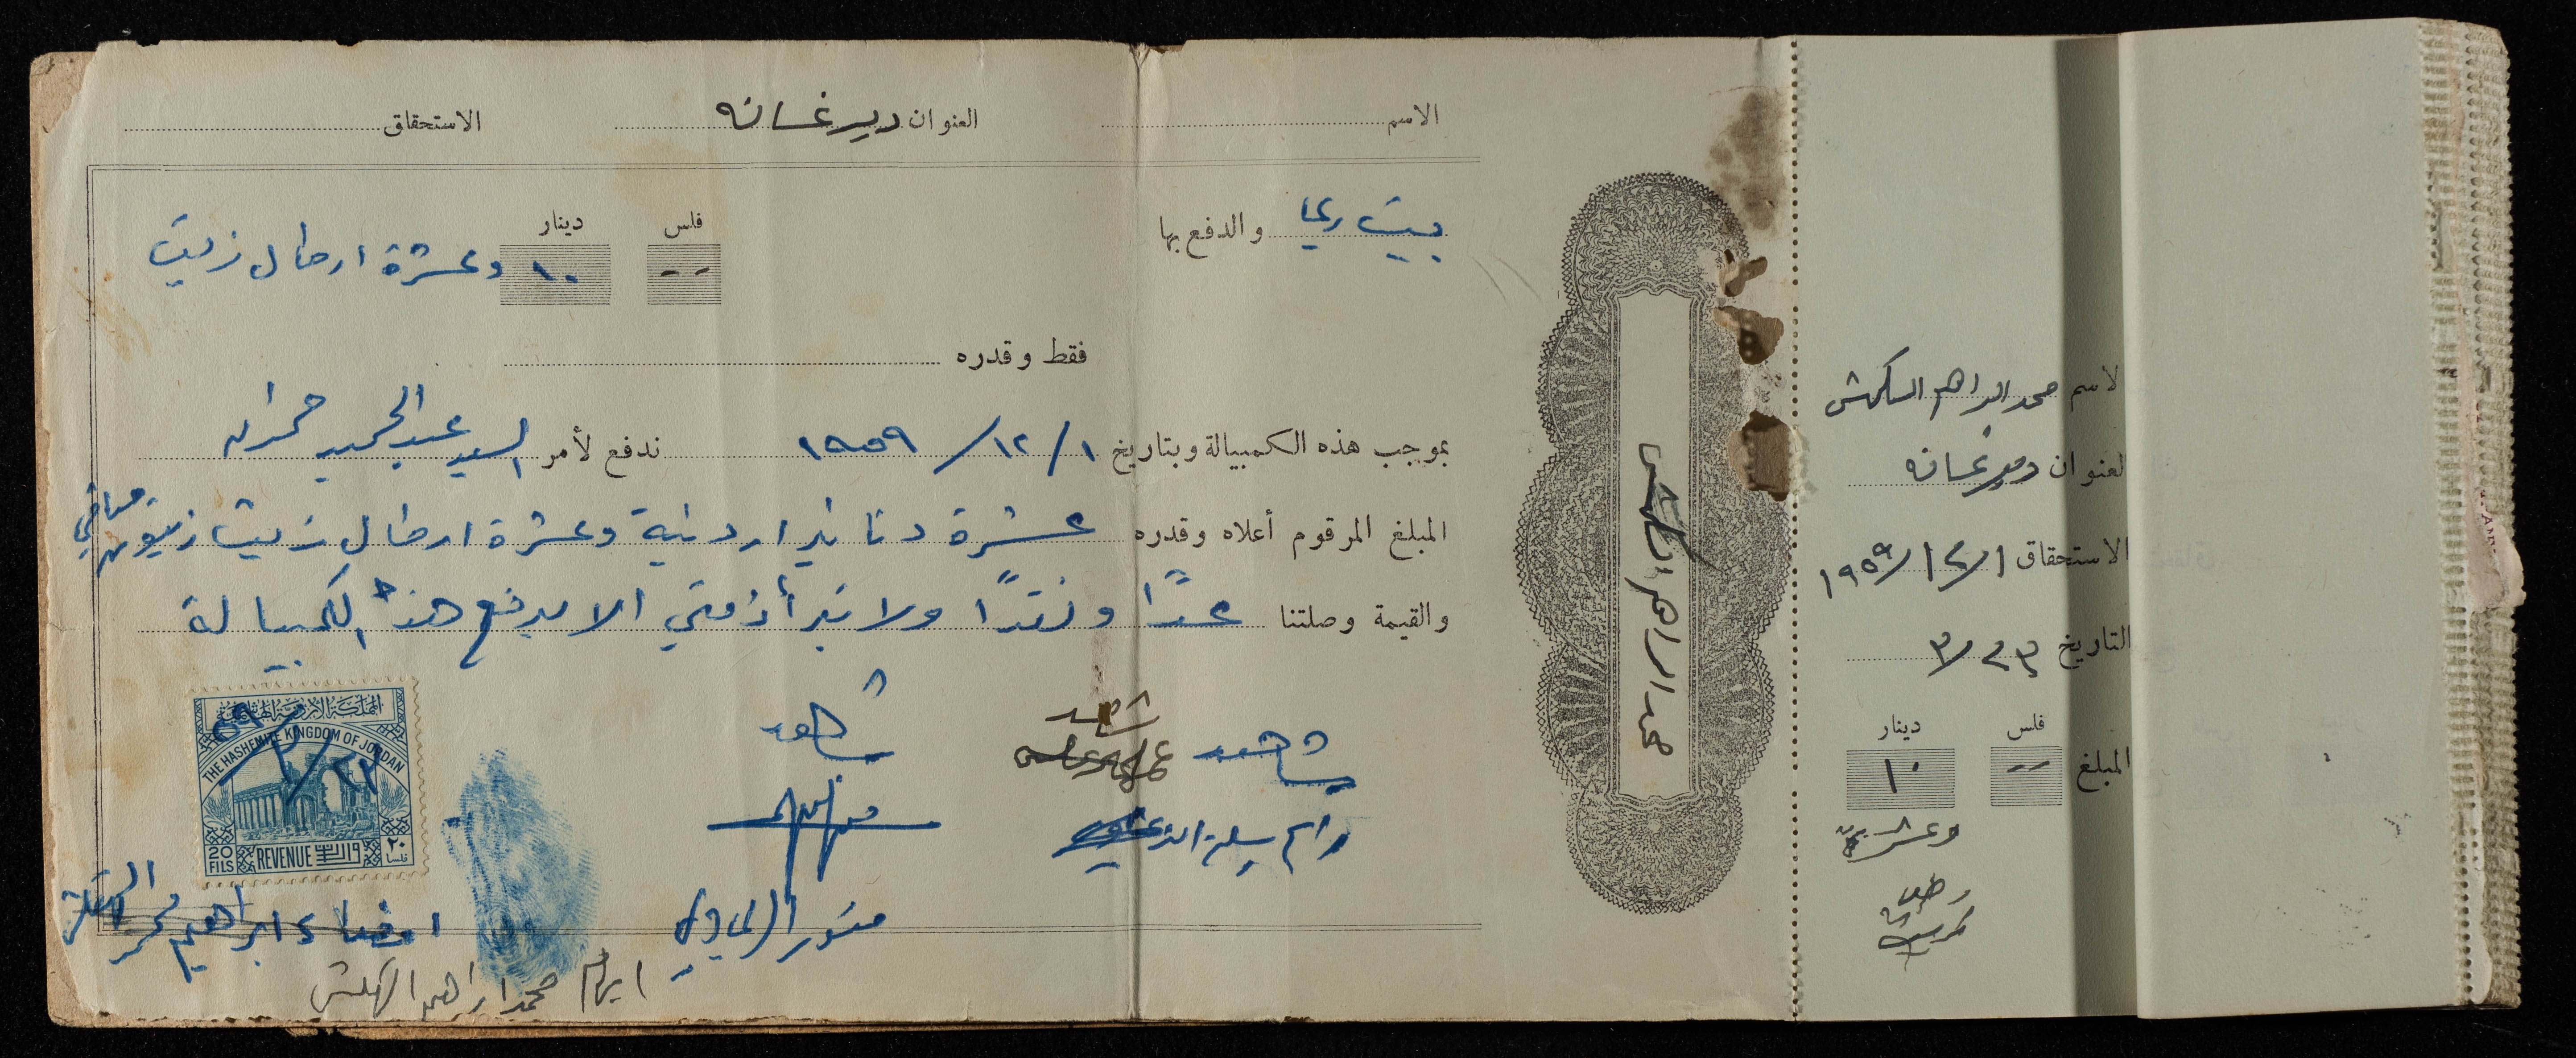 الاسم العنوان دير غسانه الاستحقاق
بيت ريما والدفع بها
فلس دينار
-- ١٠ وعشرة ارطال زيت
فقط وقدره
بموجب هذه الكمبيالة وبتاريخ ١/ ١٢/ ١٩٥٩ ندفع لأمر السيد عبد الحميد حمدان
المبلغ المرقوم أعلاه وقدره عشرة دنانير اردنية وعشرة ارطال زيت زيتون صافي
والقيمة وصلتنا عدًا ونقدًا ولا تبرأ ذمتي الا بدفع هذه الكمبيالة
شاهد
شاهد
شاهد
المملكة الأردنية الهاشمية
THE HASHEMITE KINGDOM OF JORDAN
٢٣/٣/٥٩
20 FILS REVENUE ٢٠ فلسا
امضاء ابراهيم محمد
ابهام محمد ابراهيم
محمد ابراهيم
لاسم محمد ابراهيم
لعنوان دير غسانه
الاستحقاق ١/١٢/١٩٥٩
التاريخ ٢٣/٣
فلس دينار
المبلغ -- ١٠
رطل
زيت